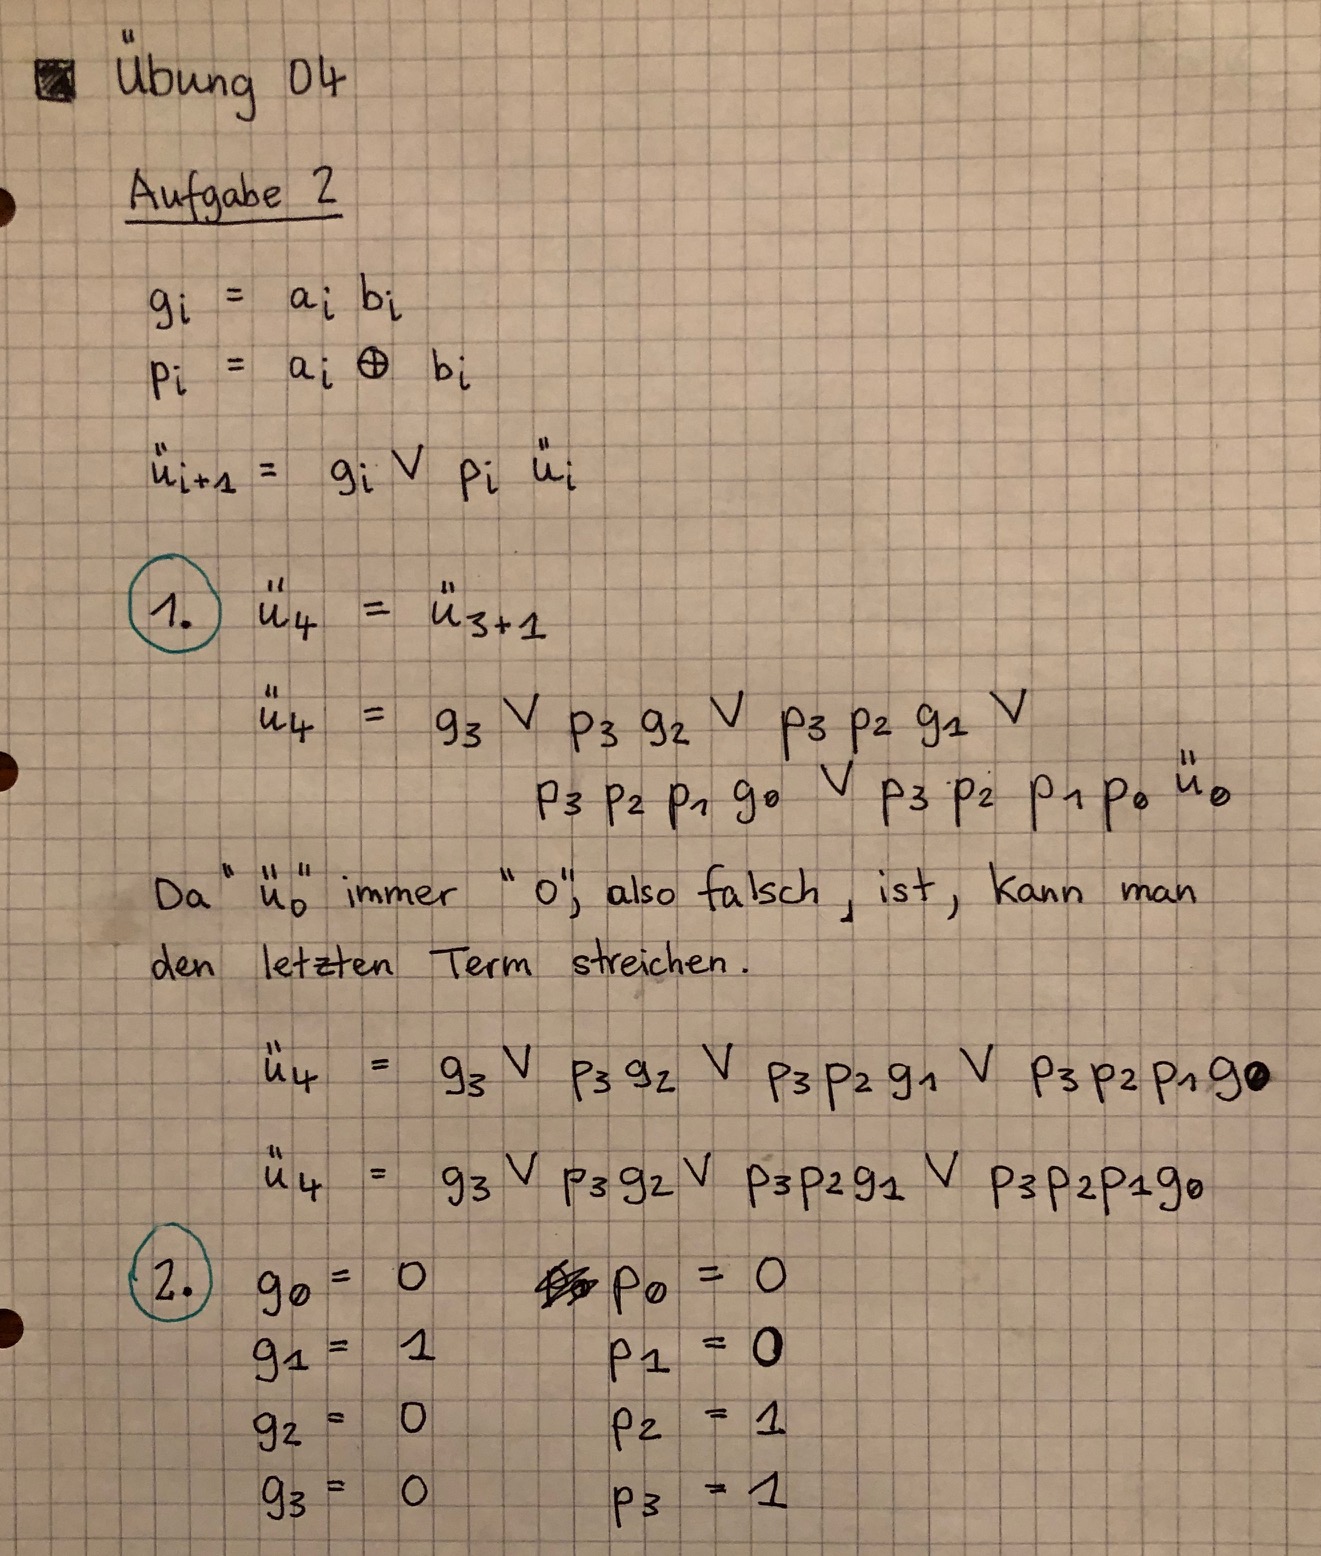 Übung 04
Aufgabe 2
gi = ai bi
pi = ai ⊕ bi
üi+1 = gi ∨ pi üi
1. ü4 = ü3+1
ü4 = g3 ∨ p3 g2 ∨ p3 p2 g1 ∨
p3 p2 p1 g0 ∨ p3 p2 p1 p0 ü0
Da "ü0" immer "0", also falsch, ist, kann man
den letzten Term streichen.
ü4 = g3 ∨ p3 g2 ∨ p3 p2 g1 ∨ p3 p2 p1 g0
ü4 = g3 ∨ p3 g2 ∨ p3 p2 g1 ∨ p3 p2 p1 g0
2. g0 = 0 p0 = 0
g1 = 1 p1 = 0
g2 = 0 p2 = 1
g3 = 0 p3 = 1